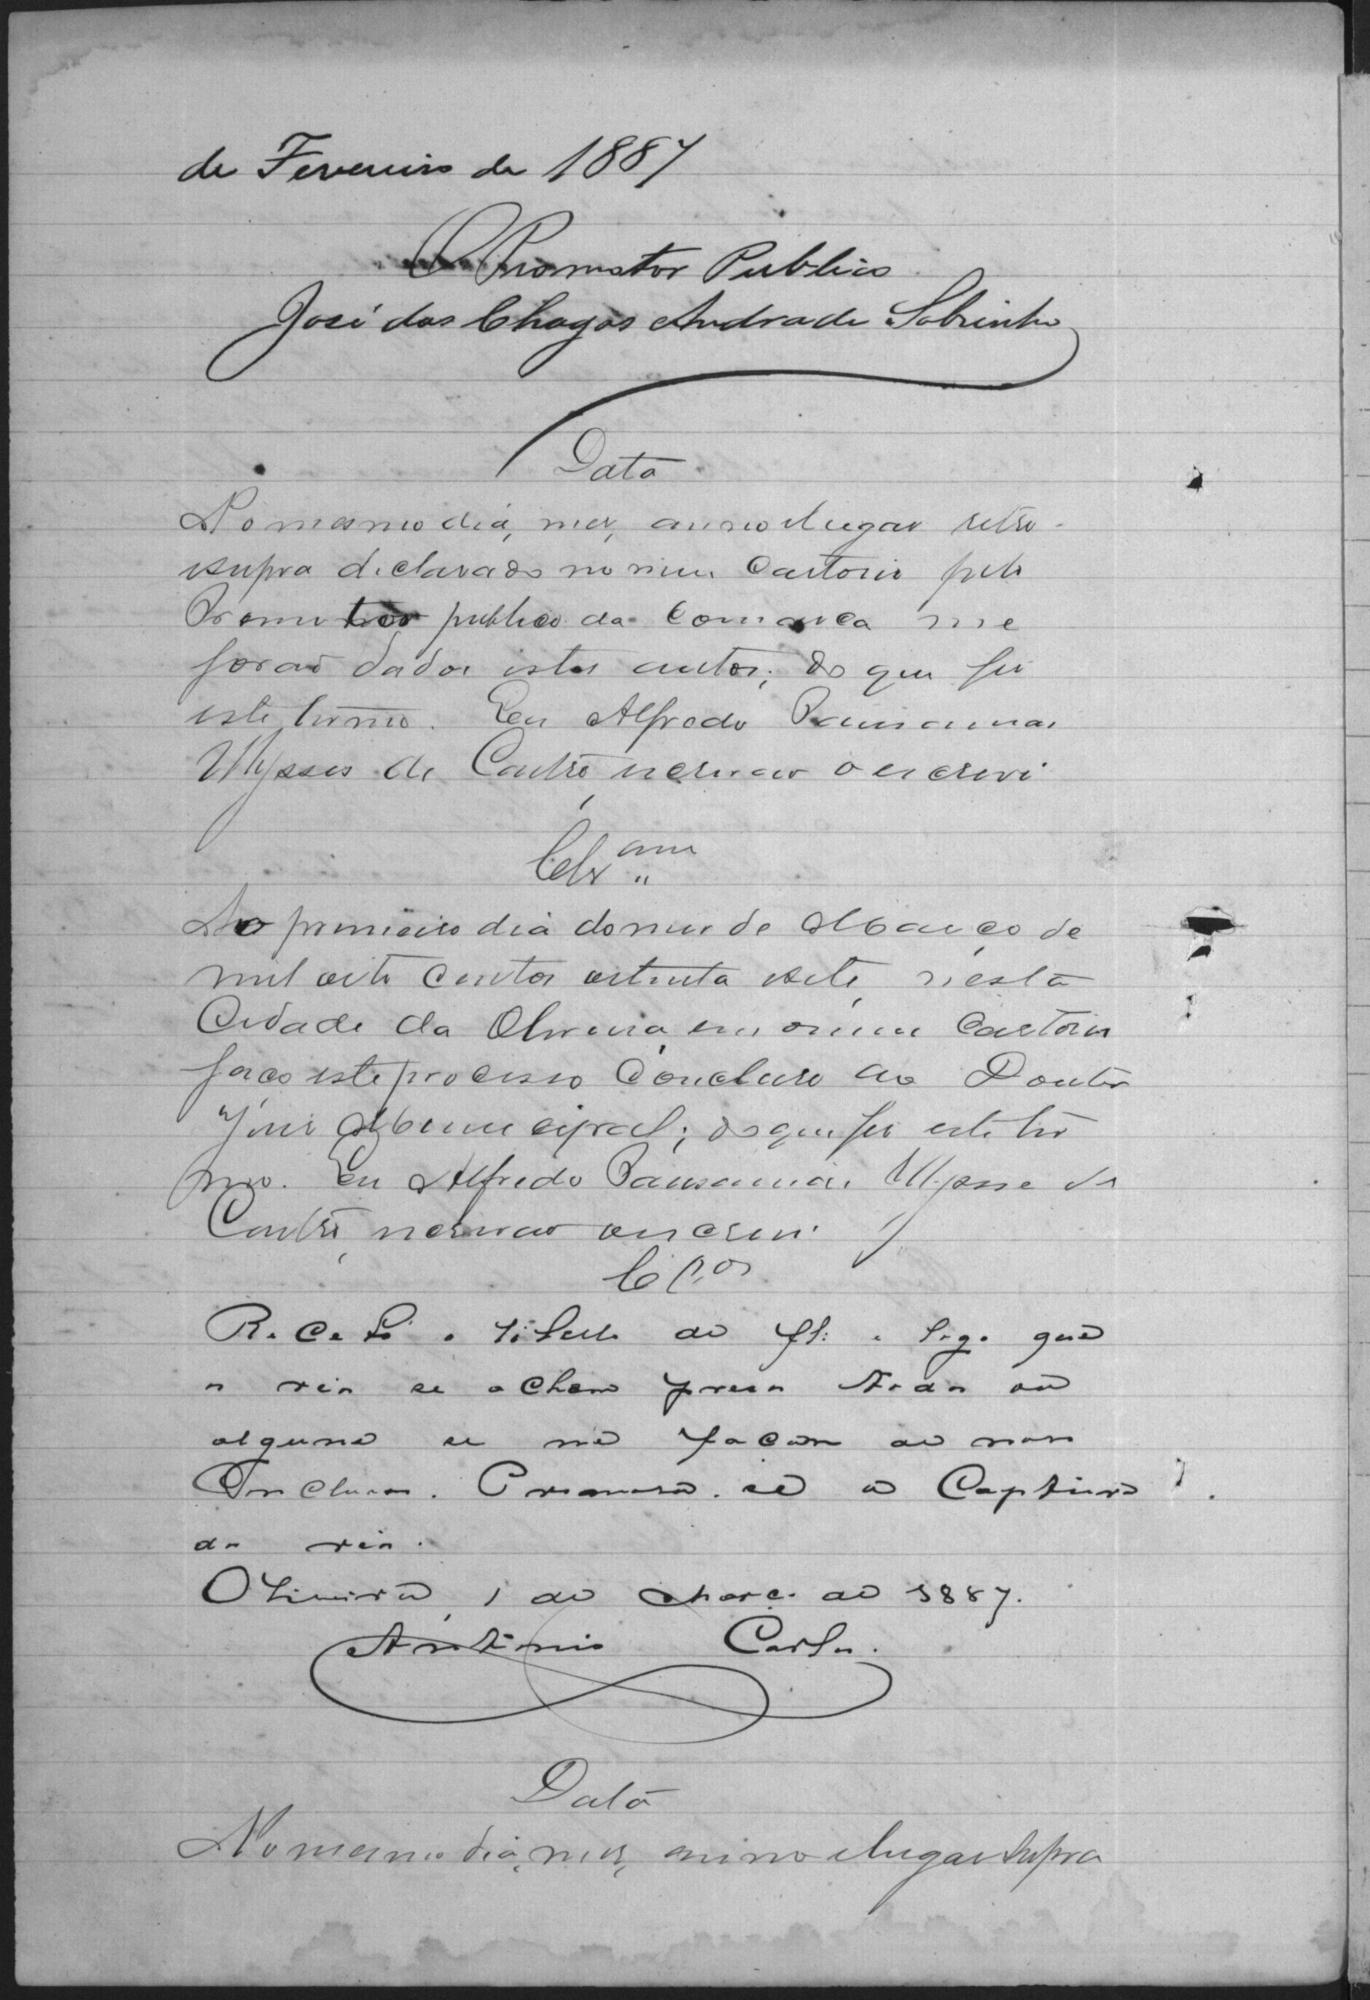 de Fevereiro de 1887
O Promotor Publico
José das Chagas Andrade Sobrinho
Data
No mesmo dia, mez, anno e lugar retro
e supra declarado no meu Cartorio pelo
Promotor publico da Comarca me
forão dados estes autos; do que fiz
este termo. Eu Alfredo Pausanias
Ulysses de Castro, escrivão o escrevi
Clsam
Ao primeiro dia do mez de Março de
mil oito centos oitenta e sete, nesta
Cidade da Oliveira, em o meu Cartorio
faço este processo Concluso ao Doutor
Juiz Municipal; do que fiz este ter
mo. Eu Alfredo Pausanias Ulysse de
Castro, escrivão o escrevi.
Clos
Recebi o libello de fl: e logo que
os réos se achem presos todos ou
algum se me façam de novo
Conclusos. Promova-se a Captura
dos réos.
Oliveira, 1 de Março de 1887.
Antonio Carlos.
Data
No mesmo dia, mez, anno e lugar supra